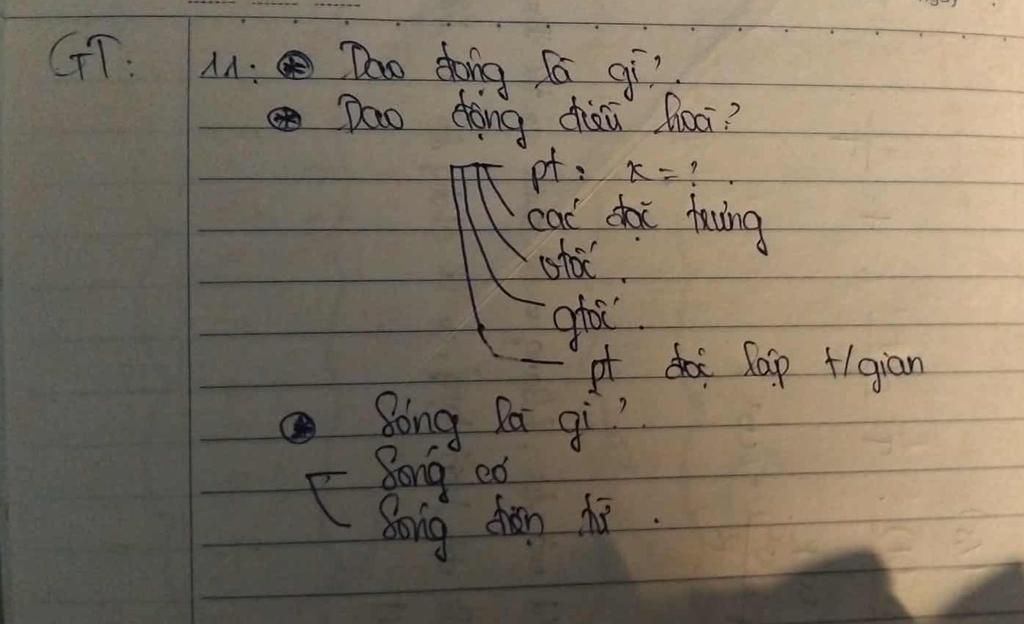 GT: 11: Dao động là gì?
Dao động điều hoà?
pt: x = ?
các đặc trưng
vtốc.
gtốc.
pt độc lập t/gian
Sóng là gì?
Sóng cơ
Sóng điện từ.